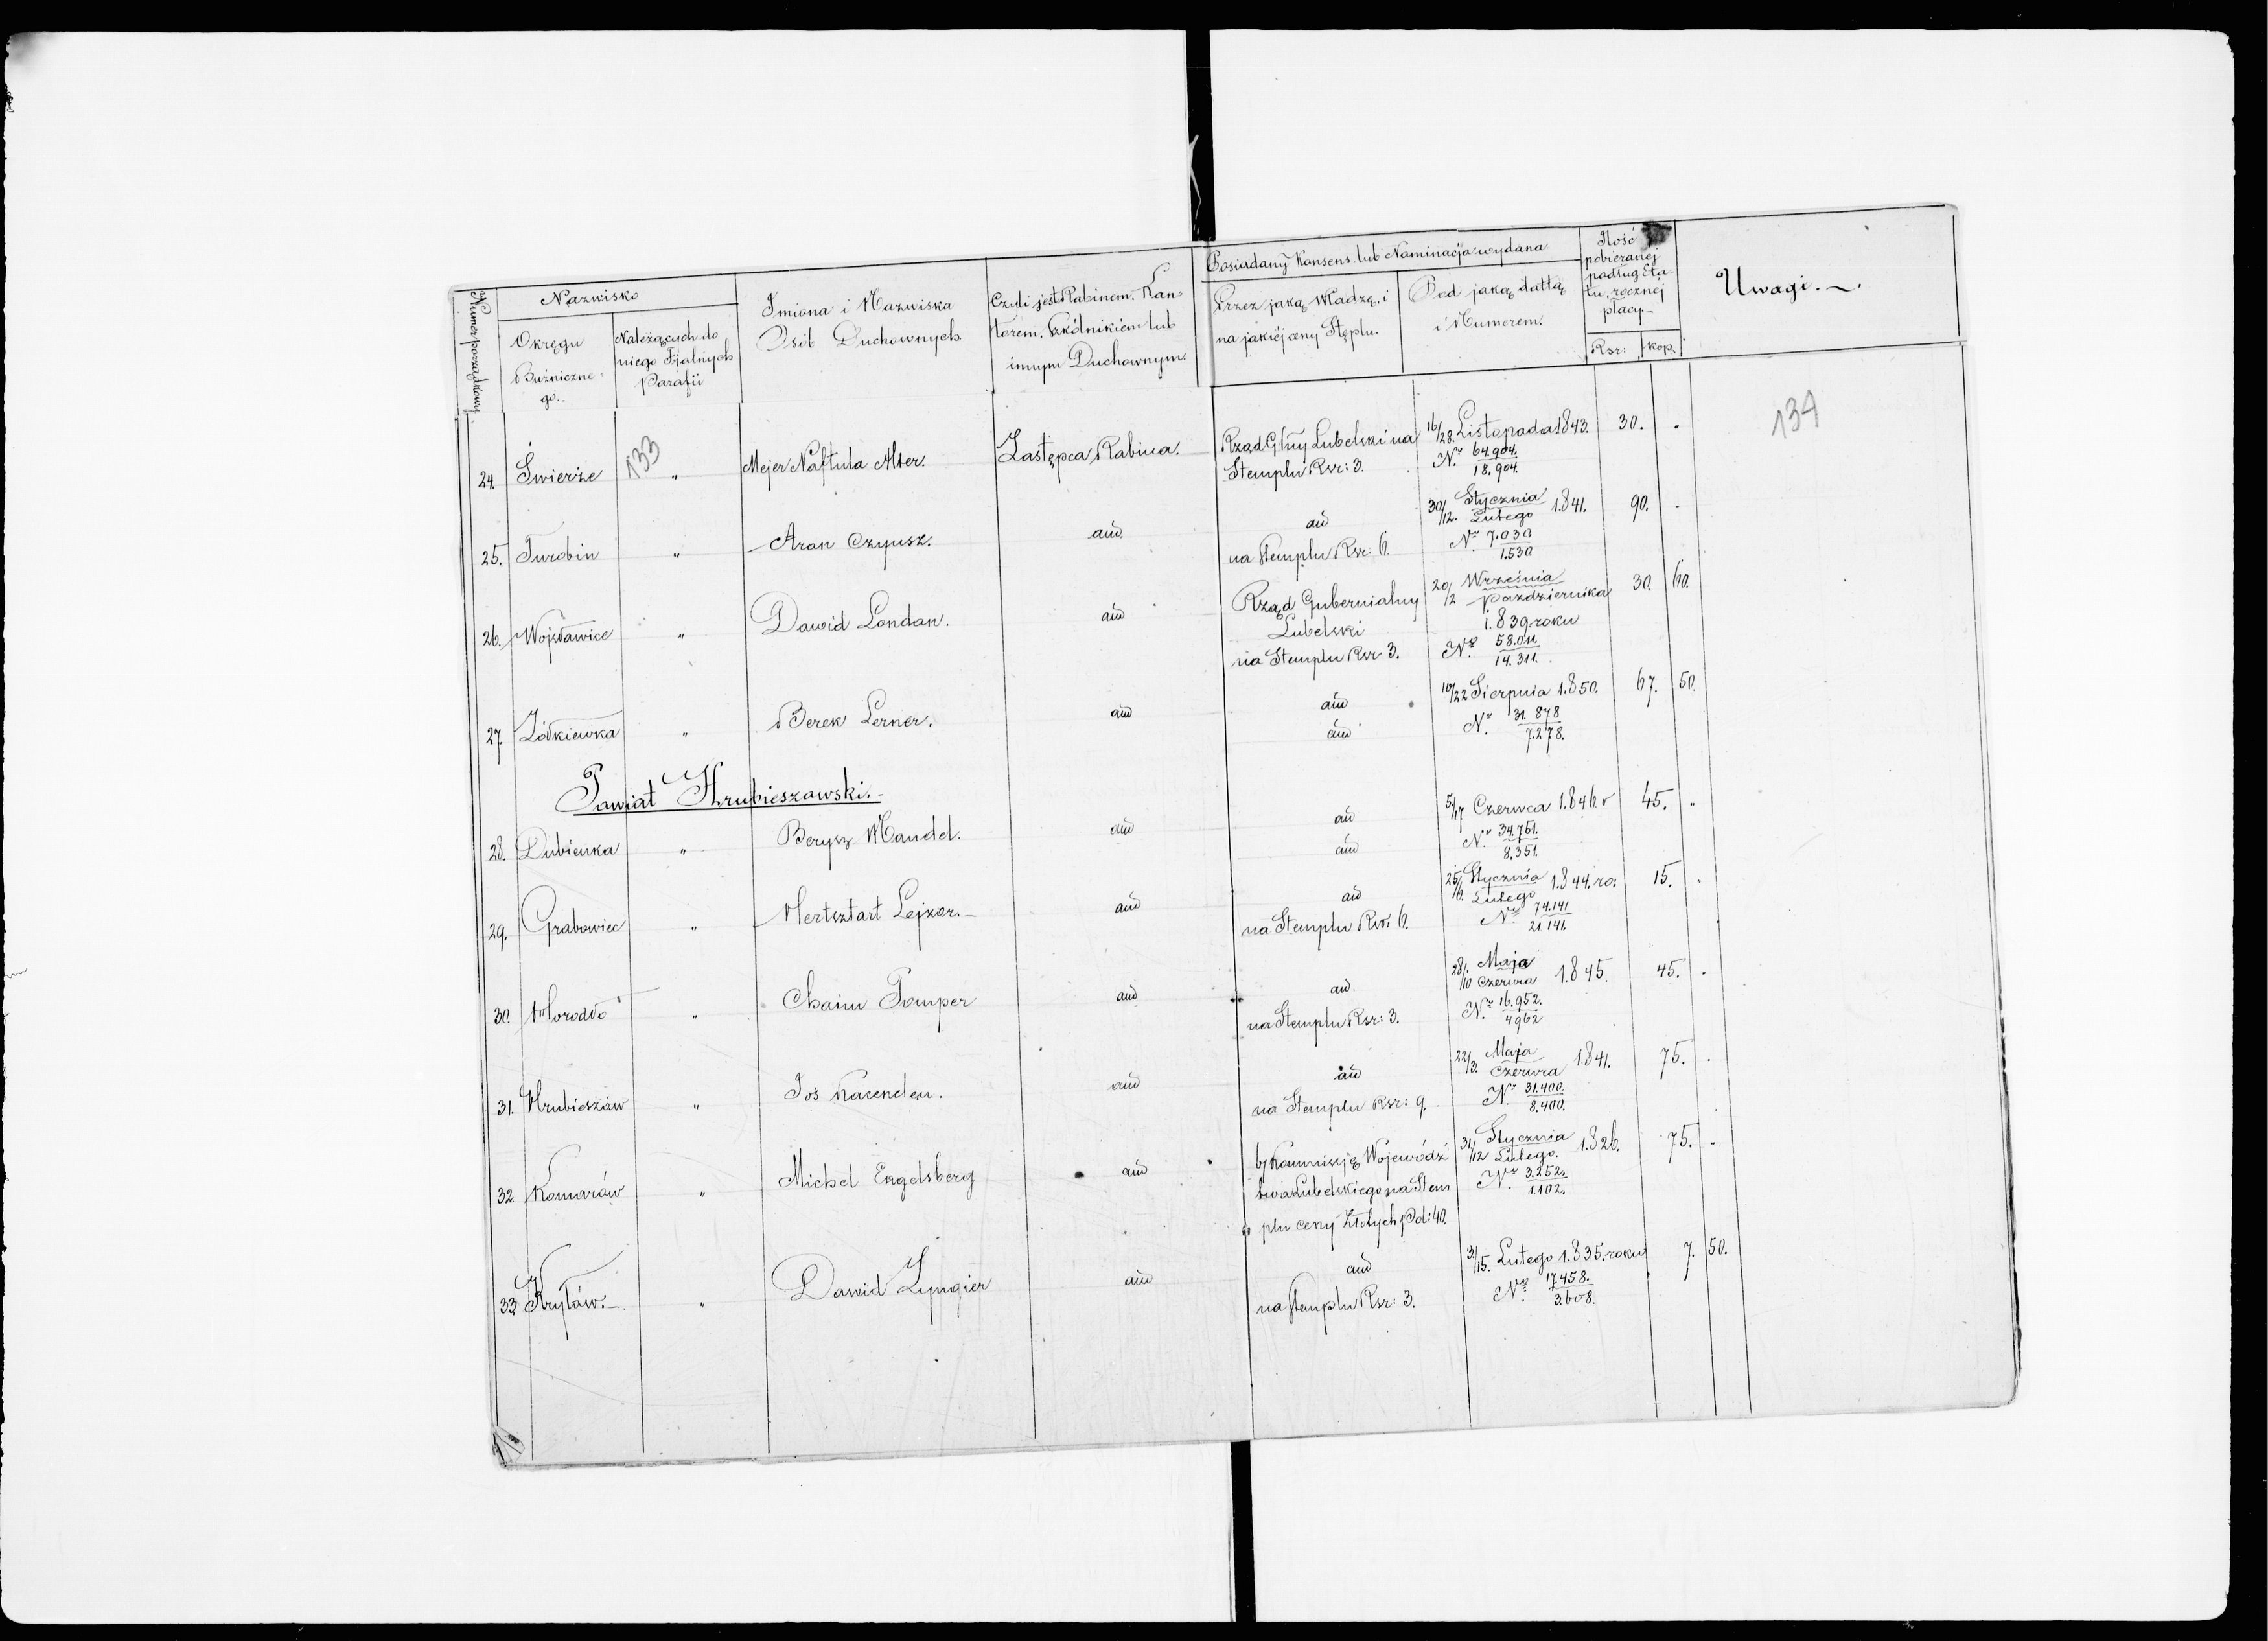 Numer porządkowy
Nazwisko
Okręgu
Bużniczne-
go.-
Należących do
niego Fijalnych
Parafii
Imiona i Nazwiska
Osób Duchownych
Czyli jest Rabinem. Kan-
torem. Szkólnikiem lub
innym Duchownym.
Posiadany Konsens lub Naminacja wydana
Przez jaką Władzę, i
na jakiéj ceny Stęplu.
Pod jaką dattą
i Numerem.
Ilość
pobieranéj
podług Eta-
tu, rocznéj
płacy-
Rsr: kop.
Uwagi.
133
134
24. Świerże " Mejer Naftula Alter. Zastępca Rabina. Rząd Głny Lubelski na 16/28. Listopada 1843. 30. .
Stemplu Rsr: 3. Nr. 64.904.
18.904.
25. Turobin " Aran Czyusz. aud. aud 30/12. Stycznia
Lutego 1.841. 90. .
na Stemplu Rsr: 6. Nr. 7.030
1.530
26. Wojsławice " Dawid Londan. aud Rząd Gubernialny 20/2 Września
Października 30. 60.
Lubelski 1.839 roku
na Stemplu Rsr 3. No. 58.011.
14.311.
27. Żółkiewka " Berek Lerner. aud aud 10/22 Sierpnia 1.850. 67. 50.
aud Nr. 31.878
7.278.
Powiat Hrubieszawski.-
28. Dubienka " Berysz Mandel. aud aud 5/17 Czerwca 1.846. r 45. "
aud Nr. 34.751.
8.351.
29. Grabowiec " Hertsztart Lejzor.- aud aud 25/6. Stycznia
Lutego 1.844. ro: 15. .
na Stemplu Rsr: 6. No. 74.141
21.141.
30. Horodło " Chaim Pomper aud aud 28/10 Maja
Czerwca 1.845. 45. .
na Stemplu Rsr: 3. Nr. 16.952.
4962
31. Hrubieszów " Jos Kacenelen. aud aud 22/3. Maja
Czerwca 1841. 75. .
na Stemplu Rsr: 9. Nr. 31.400.
8.400.
32. Komarów " Michel Engelsberg aud b; Kommisję Wojewódz 31/12 Stycznia
Lutego. 1.826. 75. .
twa Lubelskiego na Stem Nr. 3.252.
1.102.
plu ceny Złotych Pol: 40.
33. Kryłów.- " Dawid Zyngier aud aud 3/15. Lutego 1.835. roku 7. 50.
na Stemplu Rsr: 3. No. 17.458.
3.608.